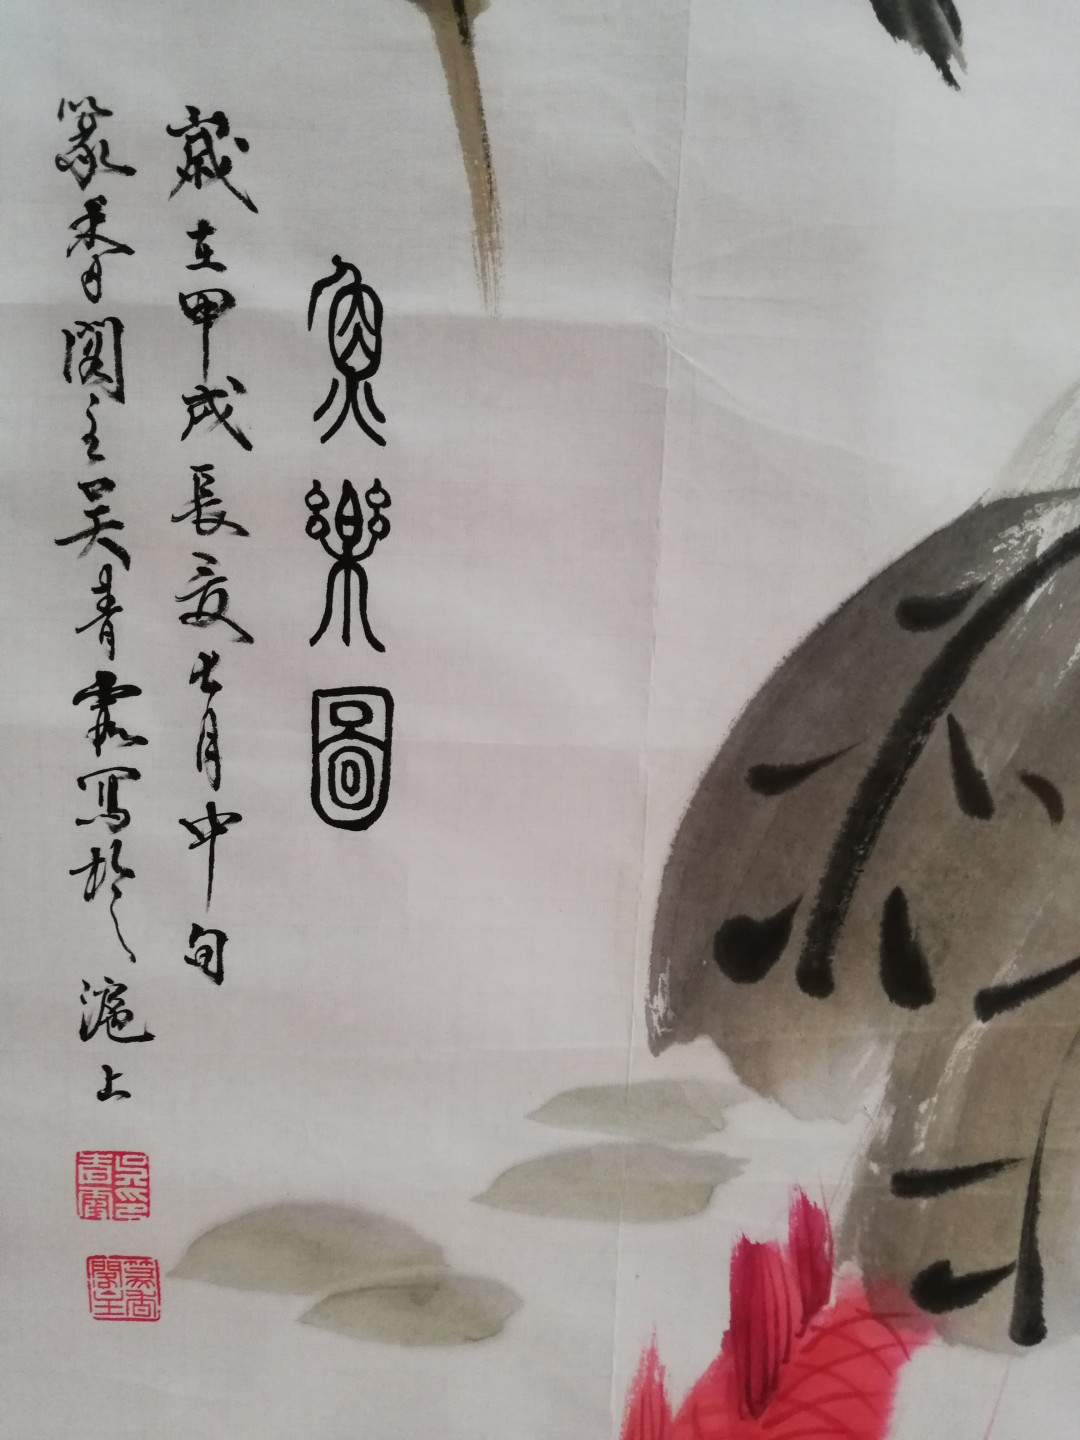 魚樂圖
歲在甲戌長夏七月中旬
篆香閣主吳青霞寫於滬上
吳印青霞
篆香閣主